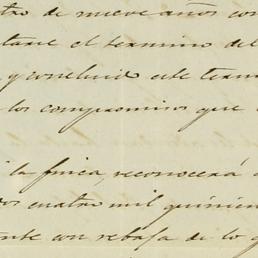 tro de nueve años con
tarse el termino del
y concluido este term
los compromisos que
la finca, reconocerá
os cuatro mil quinien
ente con rebaja de lo q